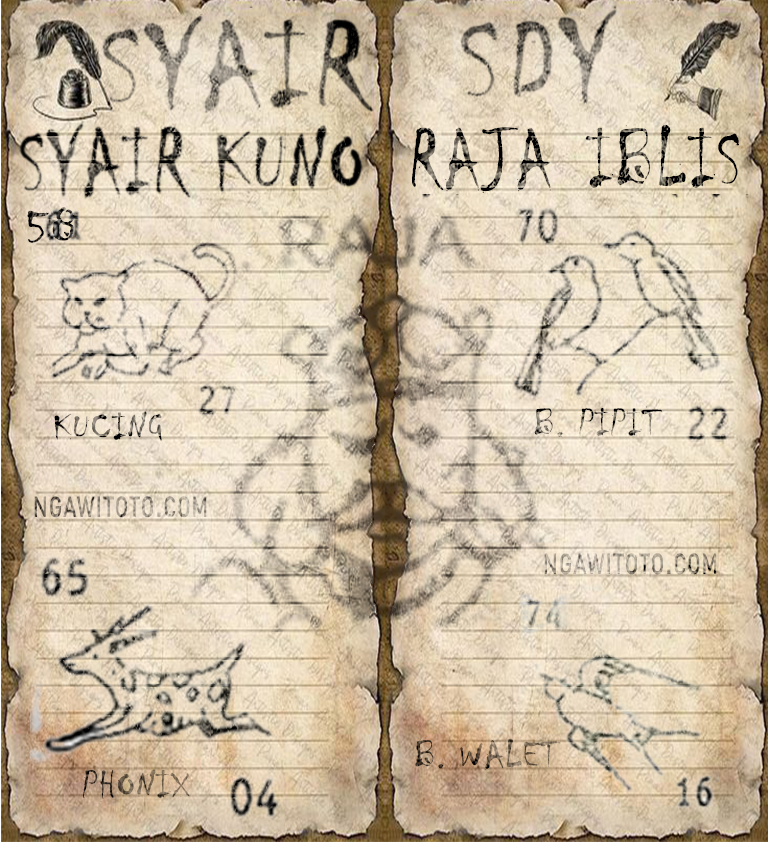 SYAIR SDY
SYAIR KUNO RAJA IBLIS
RAJA
70
27
KUCING
B. PIPIT 22
NGAWITOTO.COM
NGAWITOTO.COM
65
74
B. WALET
PHONIX 04
16